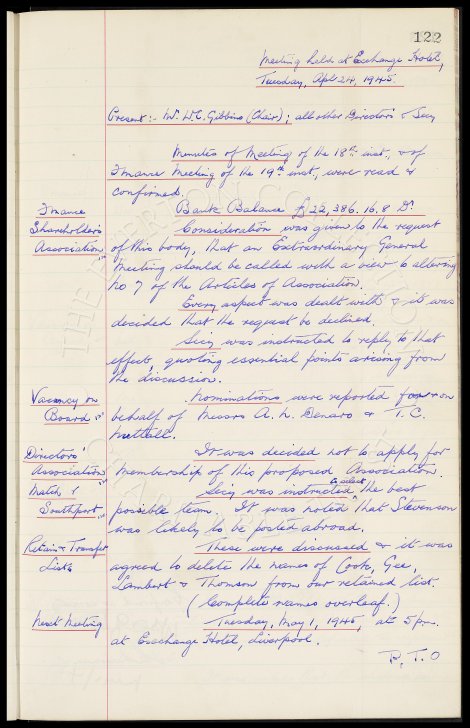 122
Meeting held at Exchange Hotel,
Tuesday, Apl 24, 1945.
Present:- Mr. W.C. Gibbins (Chair); all other Directors & Secy
Minutes of Meeting of the 18th inst, & of
Finance Meeting of the 19th inst, were read &
confirmed.
Finance
Bank Balance £22,386.16.8 Dr.
Shareholders
Association
Consideration was given to the request
of this body, that an Extraordinary General
Meeting should be called with a view to altering
No 7 of the Articles of Association.
Every aspect was dealt with & it was
decided that the request be declined.
Secy was instructed to reply to that
effect, quoting essential points arising from
the discussion.
Vacancy on
Board
Nominations were reported on
behalf of Messrs A. L. Denaro & T. C.
Nuttall.
Directors'
Association
It was decided not to apply for
membership of this proposed Association.
Match v
Southport
Secy was instructed to select the best
possible team. It was noted that Stevenson
was likely to be posted abroad.
Retain & Transfer
Lists
These were discussed & it was
agreed to delete the names of Cook, Gee,
Lambert & Thomson from our retained list.
(Complete names overleaf.)
Next Meeting
Tuesday, May 1, 1945, at 5pm.
at Exchange Hotel, Liverpool.
P.T.O